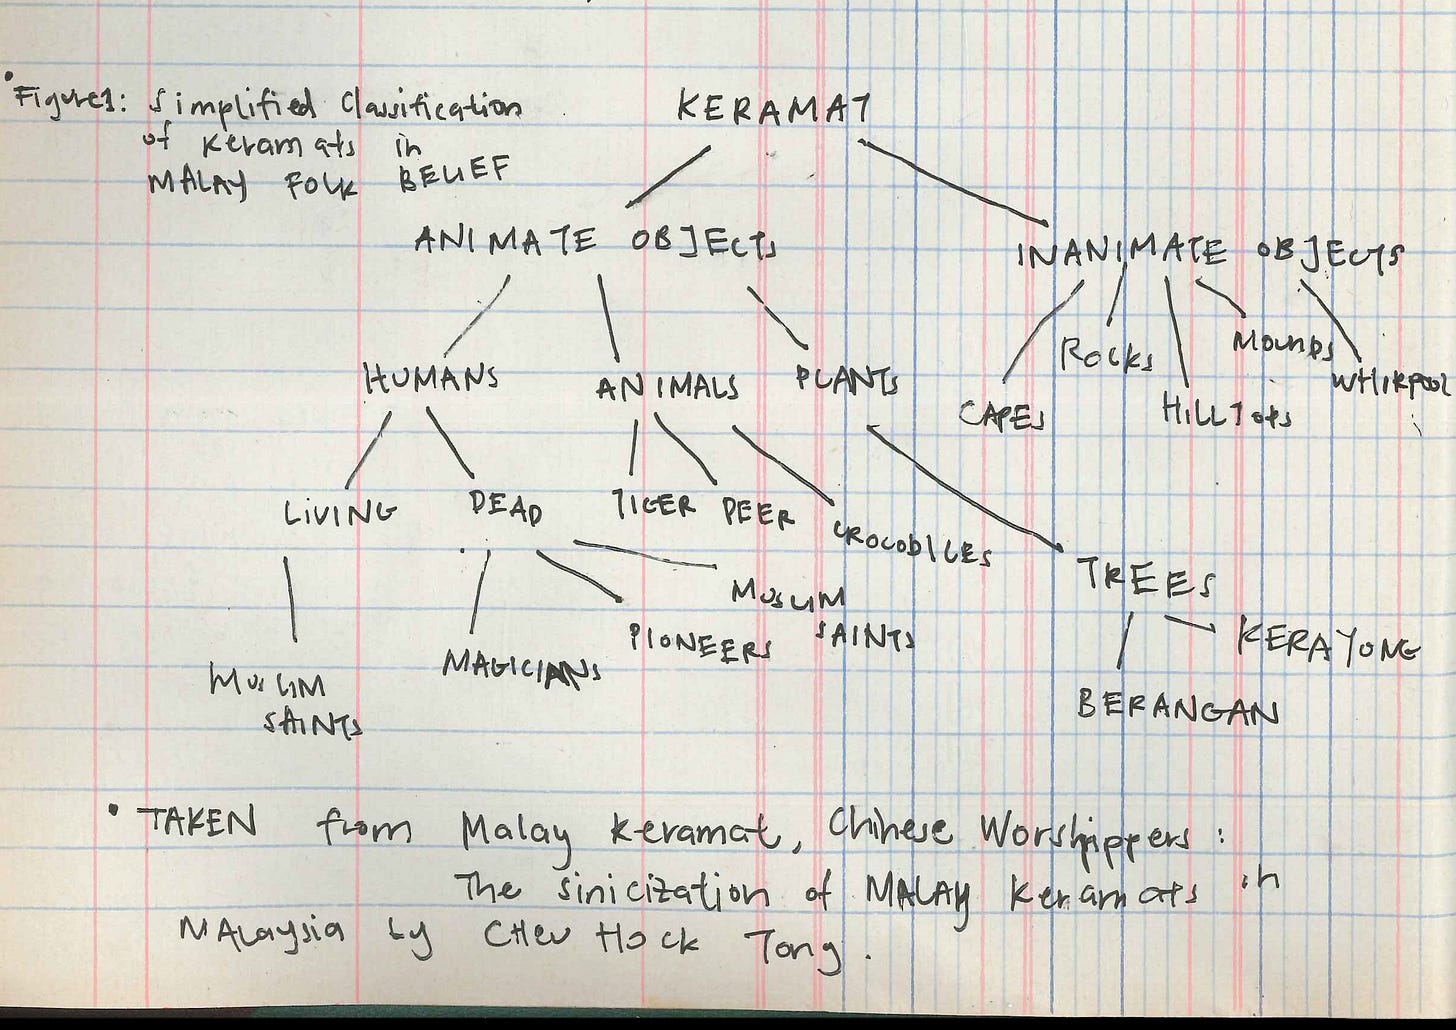 Figure1: Simplified Classification
of Keramats in
MALAY FOLK BELIEF
KERAMAT
ANIMATE OBJECTS
INANIMATE OBJECTS
HUMANS
ANIMALS
PLANTS
CAPES
ROCKS
HILLTOPS
MOUNDS
WHIRPOOL
LIVING
DEAD
TIGER
DEER
CROCODILES
TREES
MUSLIM
SAINTS
MAGICIANS
PIONEERS
MUSLIM
SAINTS
BERANGAN
KERAYONG
• TAKEN from Malay Keramat, Chinese Worshippers:
The Sinicization of MALAY Keramats in
MAlaysia by CHEU HOCK Tong.